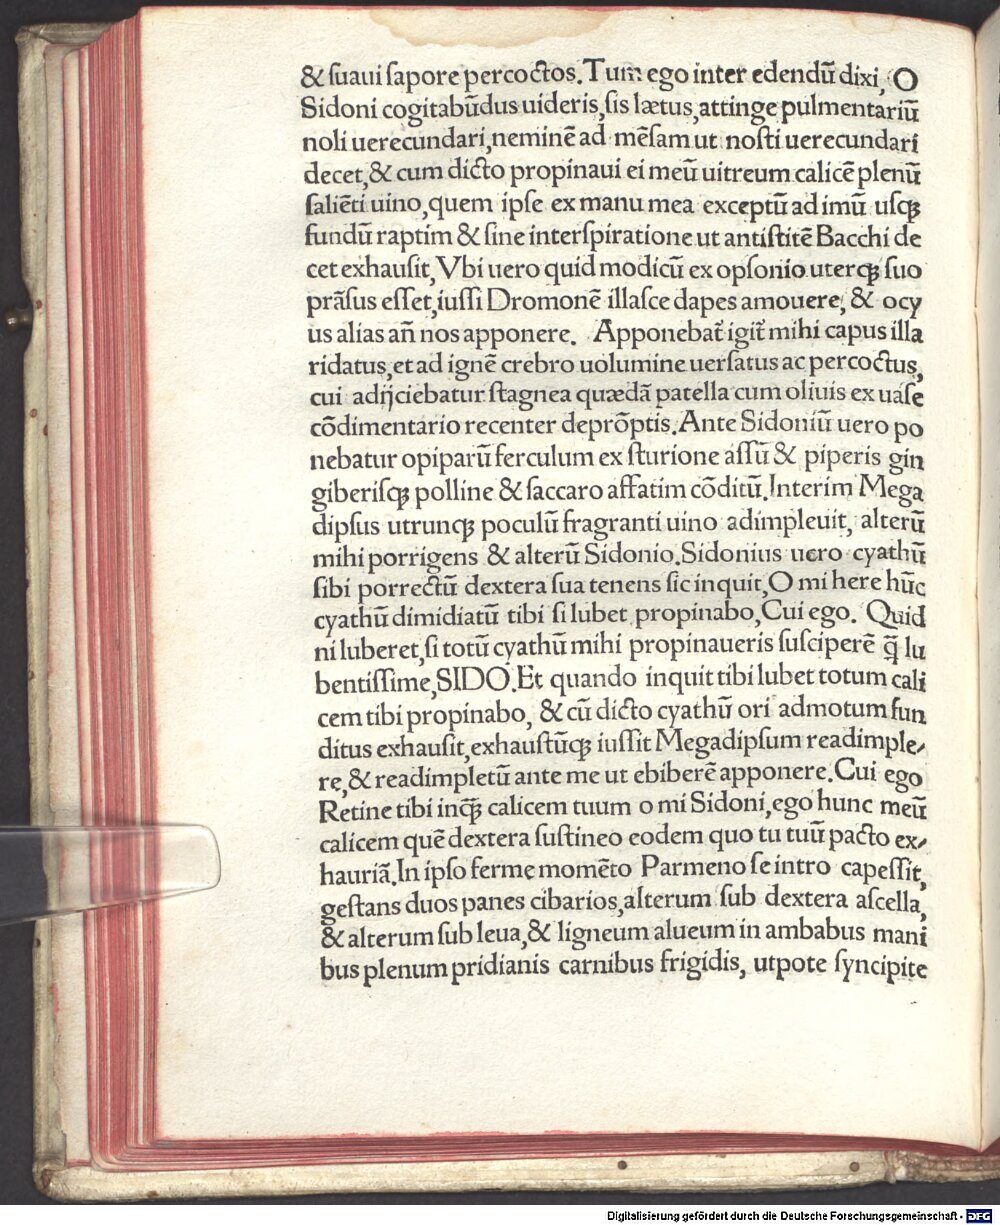 & ſuaui ſapore percoctos. Tum ego inter edendū dixi, O
Sidoni cogitabūdus uideris, ſis lætus, attinge pulmentariū
noli uerecundari, neminē ad mēſam ut noſti uerecundari
decet, & cum dicto propinaui ei meū uitreum calicē plenū
ſaliēti uino, quem ipſe ex manu mea exceptū ad imū uſqꝫ
fundū raptim & ſine interſpiratione ut antiſtitē Bacchi de
cet exhauſit, Vbi uero quid modicū ex opſonio uterqꝫ ſuo
prāſus eſſet, iuſſi Dromonē illaſce dapes amouere, & ocy
us alias an̄ nos apponere. Apponebat̄ igit̄ mihi capus illa
ridatus, et ad ignē crebro uolumine uerſatus ac percoctus,
cui adijciebatur ſtagnea quædā patella cum oliuis ex uaſe
cōdimentario recenter deprōptis. Ante Sidoniū uero po
nebatur opiparū ferculum ex ſturione aſſū & piperis gin
giberiſqꝫ polline & ſaccaro affatim cōditū. Interim Mega
dipſus utrunqꝫ poculū fragranti uino adimpleuit, alterū
mihi porrigens & alterū Sidonio. Sidonius uero cyathū
ſibi porrectū dextera ſua tenens ſic inquit, O mi here hūc
cyathū dimidiatū tibi ſi lubet propinabo, Cui ego. Quid
ni luberet, ſi totū cyathū mihi propinaueris ſuſciperē q̄ lu
bentiſſime, SIDO. Et quando inquit tibi lubet totum cali
cem tibi propinabo, & cū dicto cyathū ori admotum fun
ditus exhauſit, exhauſtūqꝫ iuſſit Megadipſum readimple⸗
re, & readimpletū ante me ut ebiberē apponere. Cui ego
Retine tibi inqꝫ calicem tuum o mi Sidoni, ego hunc meū
calicem quē dextera ſuſtineo eodem quo tu tuū pacto ex⸗
hauriā. In ipſo ferme momēto Parmeno ſe intro capeſſit,
geſtans duos panes cibarios, alterum ſub dextera aſcella,
& alterum ſub leua, & ligneum alueum in ambabus mani
bus plenum pridianis carnibus frigidis, utpote ſyncipite
Digitalisierung gefördert durch die Deutsche Forschungsgemeinschaft - DFG